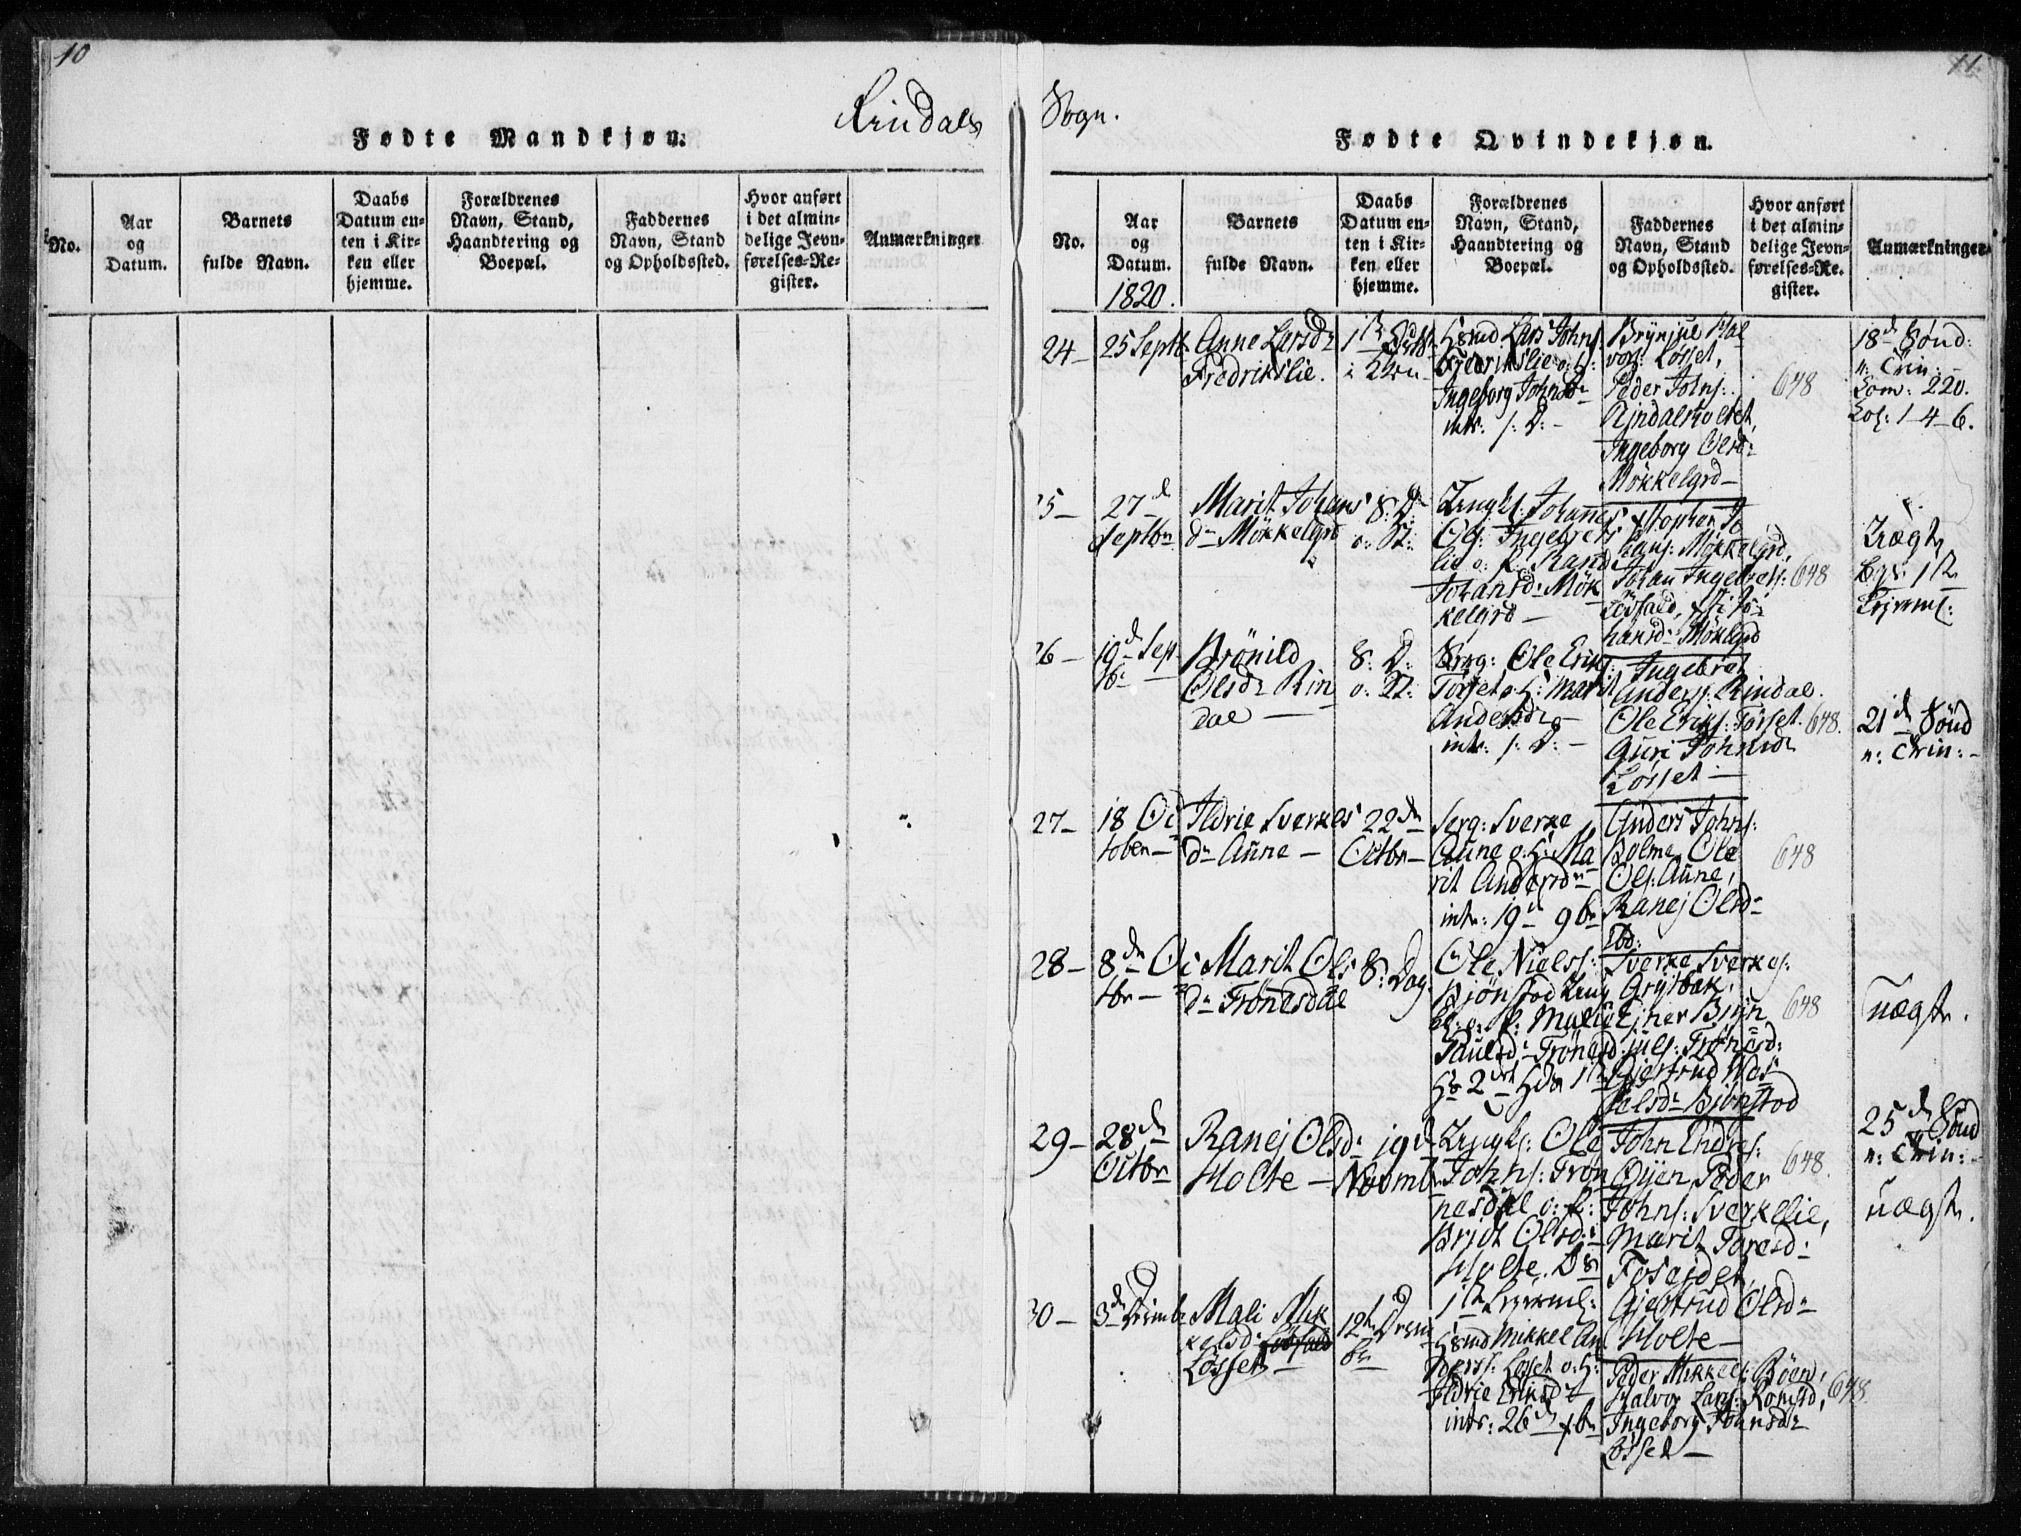 10
Rindals
Fødte Mandkjøn.
No.
Aar
og
Datum.
Barnets
fulde Navn.
Daabs
Datum en-
ten i Kir-
ken eller
hjemme.
Forældrenes
Navn, Stand,
Haandtering og
Boepæl.
Faddernes
Navn, Stand
og Opholdssted.
Hvor anført
i det almin-
delige Jevn-
førelses-Re-
gister.
Anmærkninger
11.
Sogn.
Fødte Qvindekjøn.
No.
Aar
og
Datum.
1820.
Barnets
fulde Navn.
Daabs
Datum en-
ten i Kir-
ken eller
hjemme.
Forældrenes
Navn, Stand,
Haandtering og
Boepæl.
Faddernes
Navn, Stand
og Opholdssted.
Hvor anført
i det almin-
delige Jevn-
førelses-Re-
gister.
Anmærkninger
24-
25 Septb
Anne Larsdr
Fredrikslie.
Lars Johns:
Fredrikslie o: H:
Ingeborg Johnsdr
intr: s: D: -
Brynjul Hal
vors: Løsset,
Peder Johns:
Rindalsholtet,
Ingeborg Olsd:
Møkkelgrd -
648
18d Sønd:
n: Trin: -
Com: 220.
1-4-6.
25-
27d
Septbr
Marit Johans
dr Møkkelgrd
8: D:
o: N:
Ungk: Johannes
Ols: Ingebrets
lie o: p: Rand
Johansdr Møk
kelgrd -
Stopher Jo
hans: Møkkelgrd,
Johan Ingebrets:
hansd: Møkelgrd
648
26-
19d Sep
tbr
Brönild
Olsdr Rin
dal -
8: D:
o: N:
Ole Erik:
Torset o: H: Marit
Andersdr
intr: s: D: -
Ingebret
Anders: Rindal.
Ole Eriks: Torset.
Guri Johnsdr
Løsset -
648.
21d Sønd
n: Trin: -
27-
18 Oc
tober -
Ildrie Sverkes
dr Aune -
22dn
Octbr -
Serg: Sverke
Aune o: H: Ma
rit Andersdr
intr: 19d 9br
Anders Johns:
Bolme, Ole
Ols: Aune,
Ranej Olsdr
Ibd:
648
28-
8dn Oc
tbr -
Marit Ols
dr Trönesdal
8: Dag.
Ole Niels:
Bjönstad Ung
k: o: p: Malie
Paulsd: Trönesd
Sverke Sverkes:
Grytbak,
Ejner Bryn
juls: Trönesd:
Gjertrud
Bjönstad
648
uægte.
29-
28dn
Octbr
Ranej Olsdr
Holte -
19d
Novmb
Ungk: Ole
Johns: Trön
nesdal o: p:
Bridt Olsd:
Holte.
John Endres:
Öyen, Peder
Johns: Sverkelie,
Marit Toresd:
Foseidet,
Gjertrud Olsdr
Holte -
648.
25d Sønd
n: Trin: -
uægte.
30-
3d
Mali Mik
kelsd:
Løsset -
12te
Mikkel An
ders: Løset o: H:
Ildrie Eriksdr
intr: 26d
Peder Mikkels: Böen,
Halvor Lars: Romsd,
Ingeborg Johnsdr
Løsset -
648.